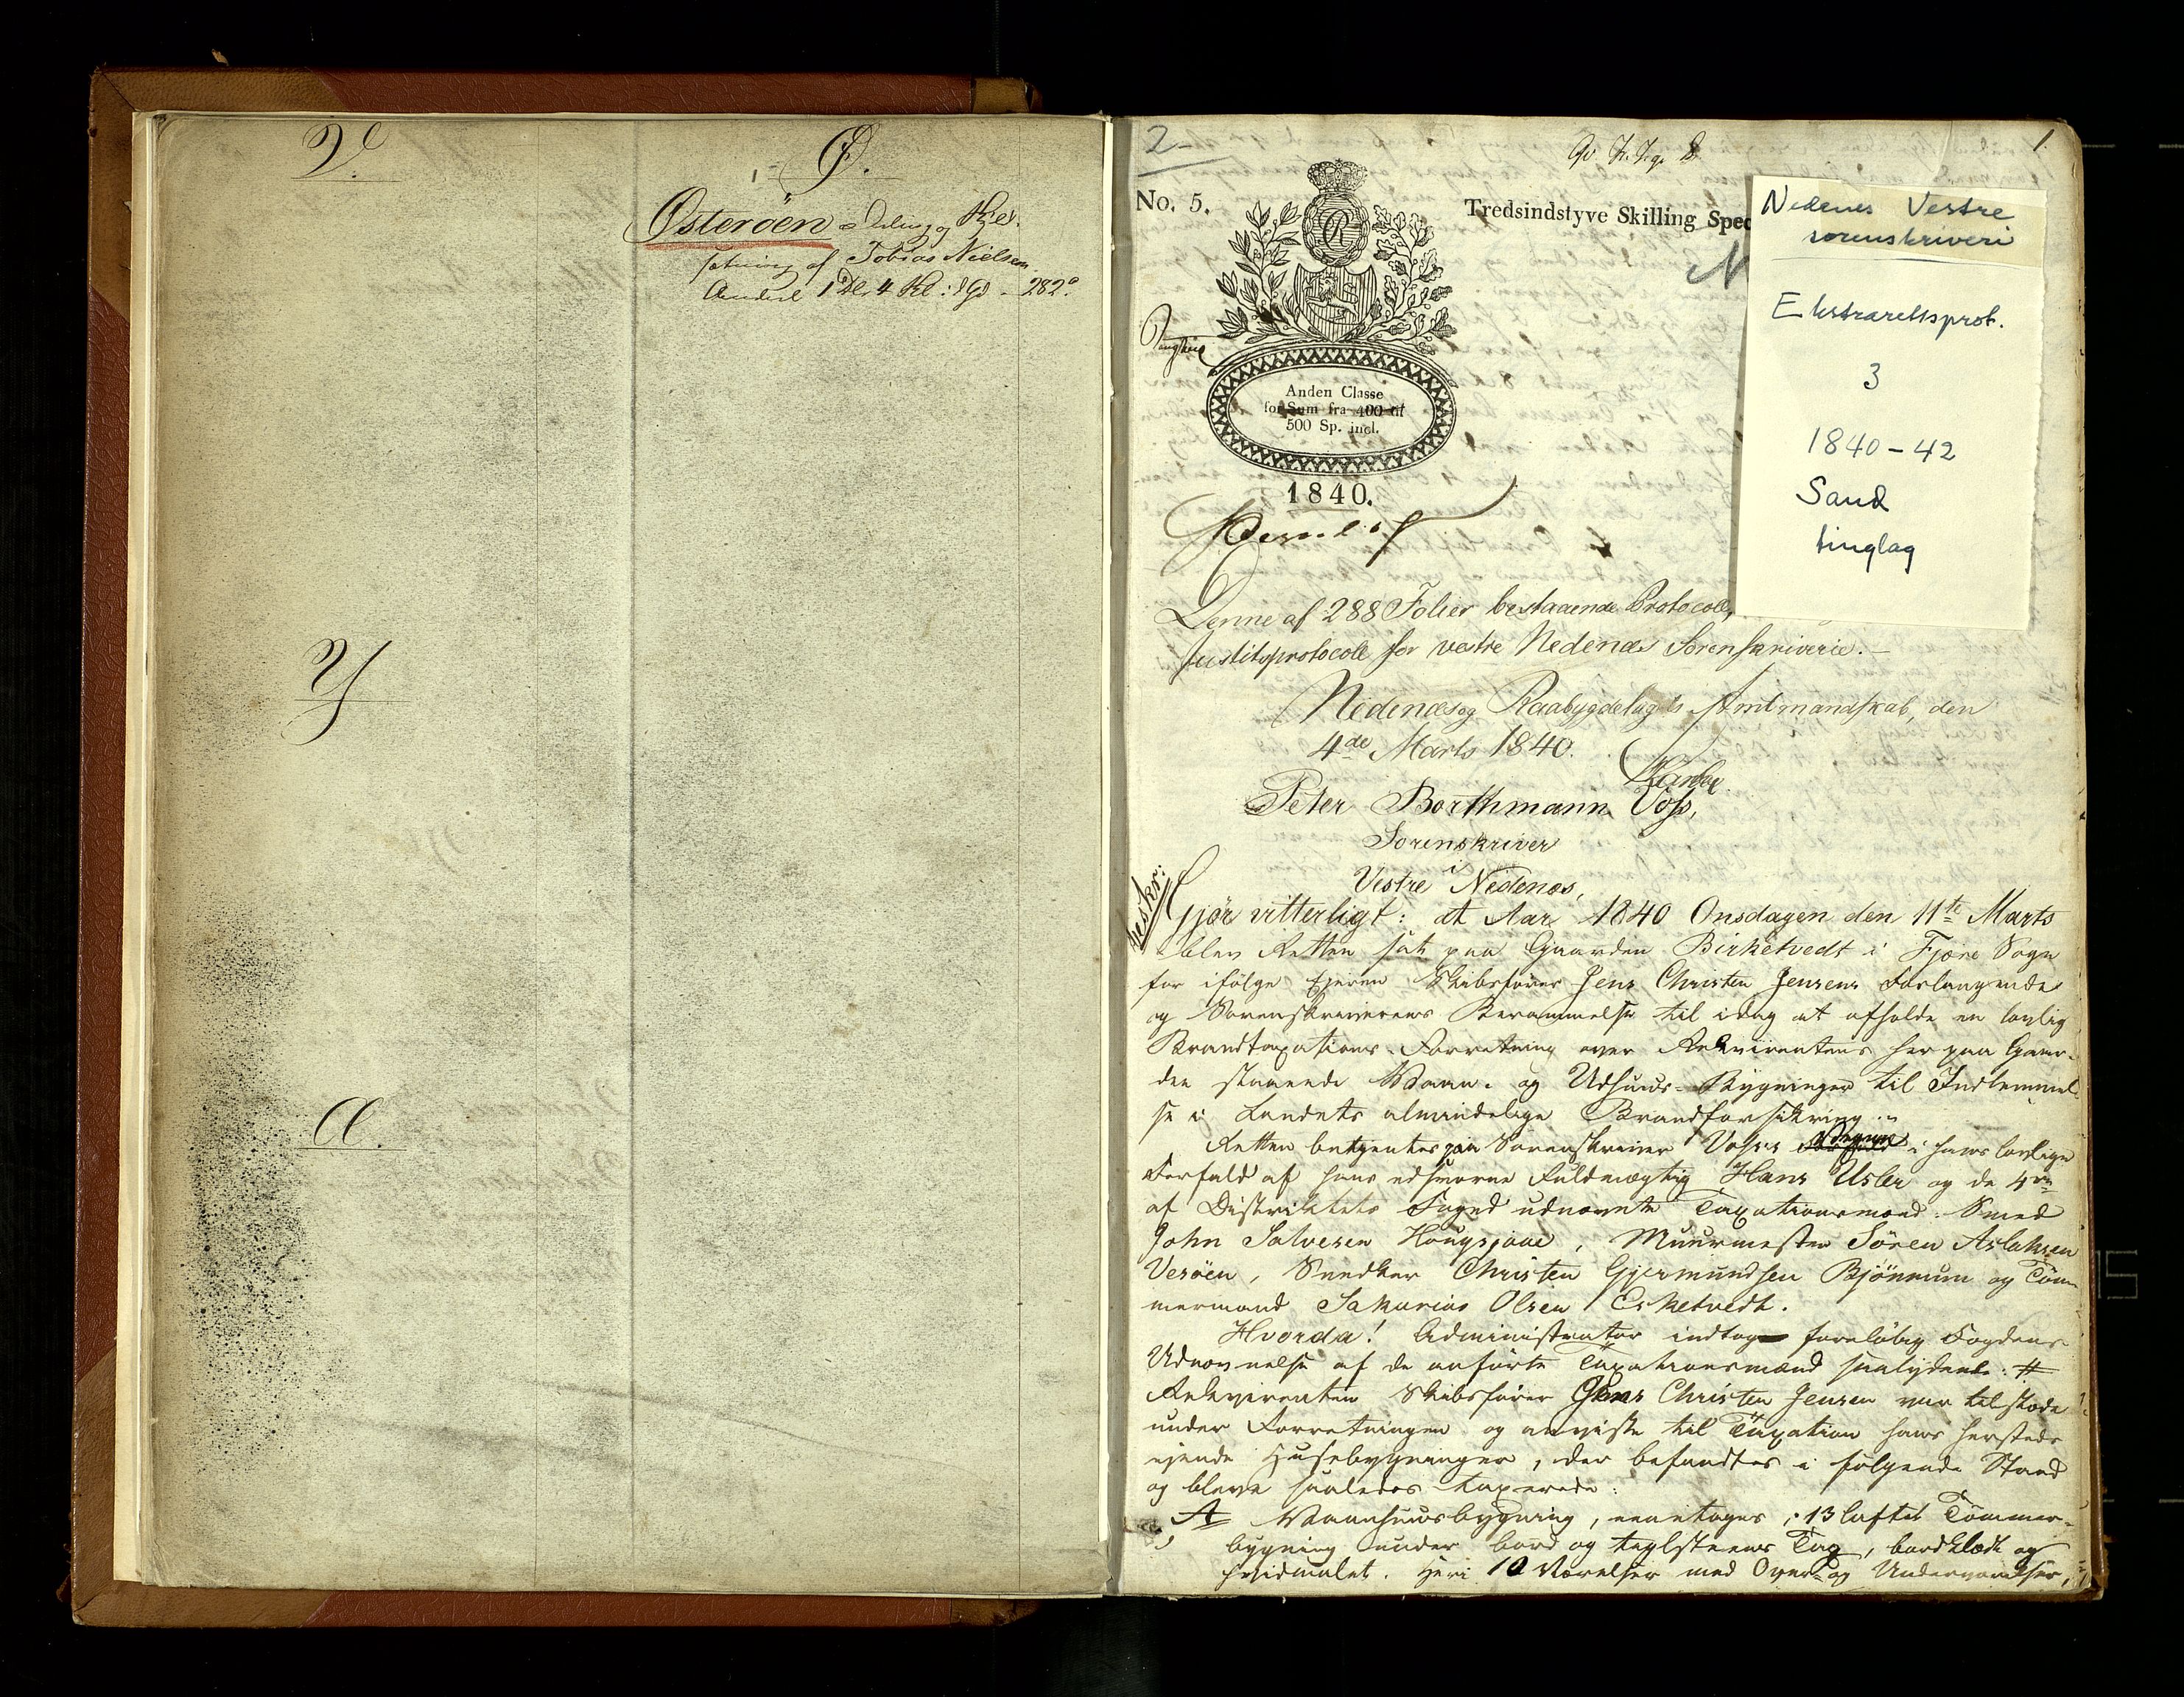 V.
Ø.
Østerøen Deling og Skyld-
sætning af Tobias Nielsen
Andeel 282
Y
Æ.
2
1.
No. 5.
Tredsindstyve Skilling Spec
R
Anden Classe
for Sum fra 400 til
500 Sp. incl.
1840.
Nedenes Vestre
sorenskriveri
Ekstrarettsprot.
3
1840-42
Sand
tinglag
Denne af 288 Folier bestaaende Protocoll,
Justitsprotocoll for vestre Nedenæs Sorenskriverie.
Nedenæs og Raabygdelagets Amtmandskab, den
4de Marts 1840.
Peter Borthmann Voss,
Sorenskriver
i
Vestre Nedenæs,
Beskr:
Gjör vitterligt: at Aar 1840 Onsdagen den 11te Marts
blev Retten sat paa Gaarden Birketvedt i Fjære Sogn
for ifölge Eieren Skibsförer Jens Christen Jensens Forlangende
og Sorenskriverens Berammelse til idag at afholde en lovlig
Brandtaxations-Forretning over Rekvirentens her paa Gaar-
den staaende Vaan- og Udhuus-Bygninger til Indlemmel-
se i Landets almindelige Brandforsikring.
Retten betjentes paa Sorenskriver Voss's Vegne i hans lovlige
Forfald af hans edsvorne Fuldmægtig Hans Usler og de 4re
af Distriktets Foged udnævnte Taxationsmænd: Smed
John Salvesen Hougsjaae, Muurmester Sören Aslaksen
Veröen, Snedker Christen Gjermundsen Bjönnum og Töm-
mermand Sakarias Olsen Esketvedt.
Hvorda! Administrator indtog foreløbig Fogdens
Udnævnelse af de anførte Taxationsmænd saalydende: #
Rekvirenten Skibsförer Jens Christen Jensen var tilstede
under Forretningen og anviste til Taxation hans hersteds
ejende Husebygninger, der befandtes i følgende Stand
og bleve saaledes taxerede:
A Vaanhuusbygning, een etages, 13 laftet Tömmer-
bygning under bord og teglsteens Tag, bordklædt og
hvidmalet. Heri 10 Værelser med Over- og Underværelser,